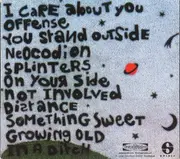 I CARE about you
offense
you stand outside
Neocodion
splinters
on your side
not involved
Distance
something sweet
growing old
in a ditch